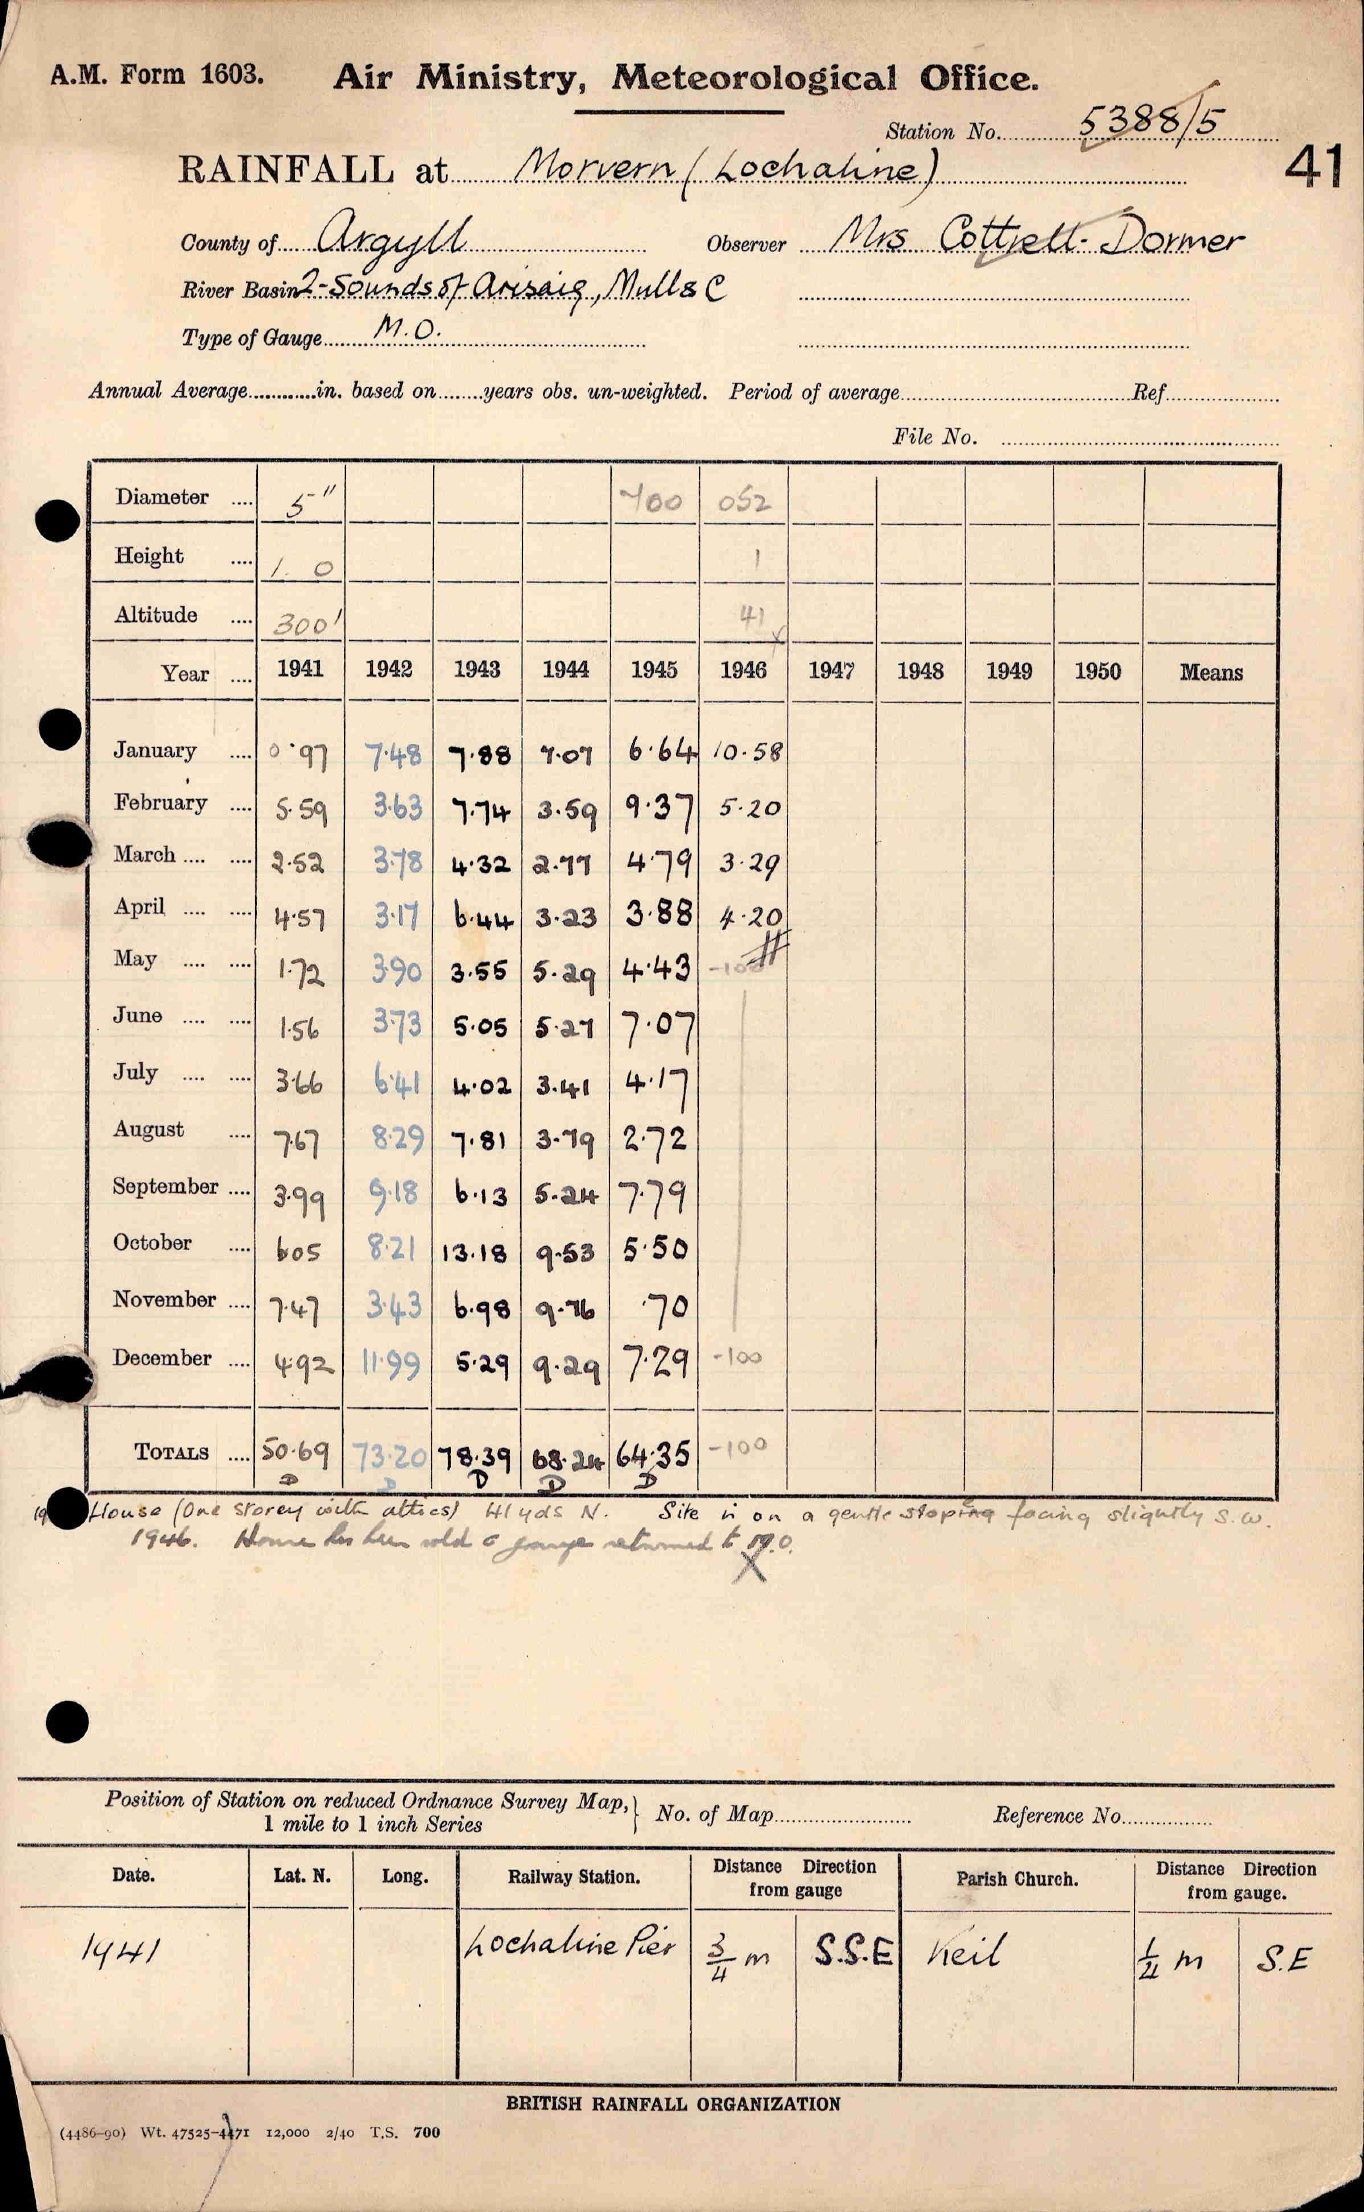 A.M. Form 1603. Air Ministry, Meteorological Office.
Station No. 5388/5
41
RAINFALL at Morvern (Lochaline)
County of Argyll Observer Mrs Cottrell-Dormer
River Basin 2-Sounds of Arisaig, Mull &c
Type of Gauge M.O.
Annual Average in. based on years obs. un-weighted. Period of average Ref
File No.
Diameter 5" 700 052
Height 1. 0 1
Altitude 300' 41
Year 1941 1942 1943 1944 1945 1946 1947 1948 1949 1950 Means
January 0.97 7.48 7.88 7.07 6.64 10.58
February 5.59 3.63 7.74 3.59 9.37 5.20
March 2.52 3.78 4.32 2.77 4.79 3.29
April 4.57 3.17 6.44 3.23 3.88 4.20
May 1.72 3.90 3.55 5.29 4.43 -100
June 1.56 3.73 5.05 5.27 7.07
July 3.66 6.41 4.02 3.41 4.17
August 7.67 8.29 7.81 3.79 2.72
September 3.99 9.18 6.13 5.24 7.79
October 6.05 8.21 13.18 9.53 5.50
November 7.47 3.43 6.98 9.76 .70
December 4.92 11.99 5.29 9.29 7.29 -100
TOTALS 50.69 73.20 78.39 68.24 64.35 -100
D D D D D
House (One storey with attics) 41 yds N. Site is on a gentle sloping facing slightly S.W.
1946. House has been sold & gauge returned to M.O.
X
Position of Station on reduced Ordnance Survey Map, 1 mile to 1 inch Series } No. of Map Reference No.
Date. Lat. N. Long. Railway Station. Distance Direction from gauge Parish Church. Distance Direction from gauge.
1941 Lochaline Pier 3/4 m S.S.E Keil 1/4 m S.E
BRITISH RAINFALL ORGANIZATION
(4486-90) Wt. 47525-4471 12,000 2/40 T.S. 700